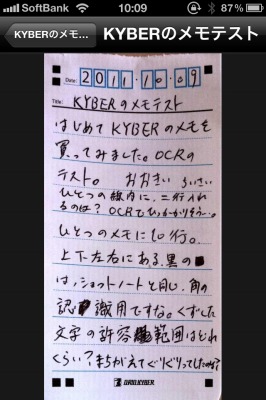 SoftBank 10:09 87%
KYBERのメモ... KYBERのメモテスト
Date: 2011・10・09
Title: KYBERのメモテスト
はじめてKYBERのメモを
買ってみました。OCRの
テスト。 おおきい ちいさい
ひとつの線内に、二行入れ
るのは?OCRでひっかかりそう…。
ひとつのメモに10行。
上下左右にある、黒の■
は、ショットノートと同じ、角の
認識用ですな。くずした
文字の許容範囲はどれ
くらい?まちがえてぐりぐりってしたのは?
KYBER